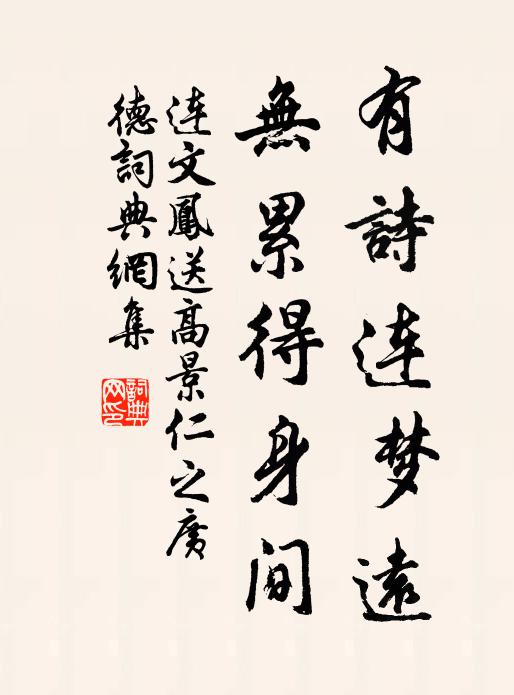 有詩连梦遠
無累得身间
连文鳳送高景仁之廣
德詞典網集
詞典网印